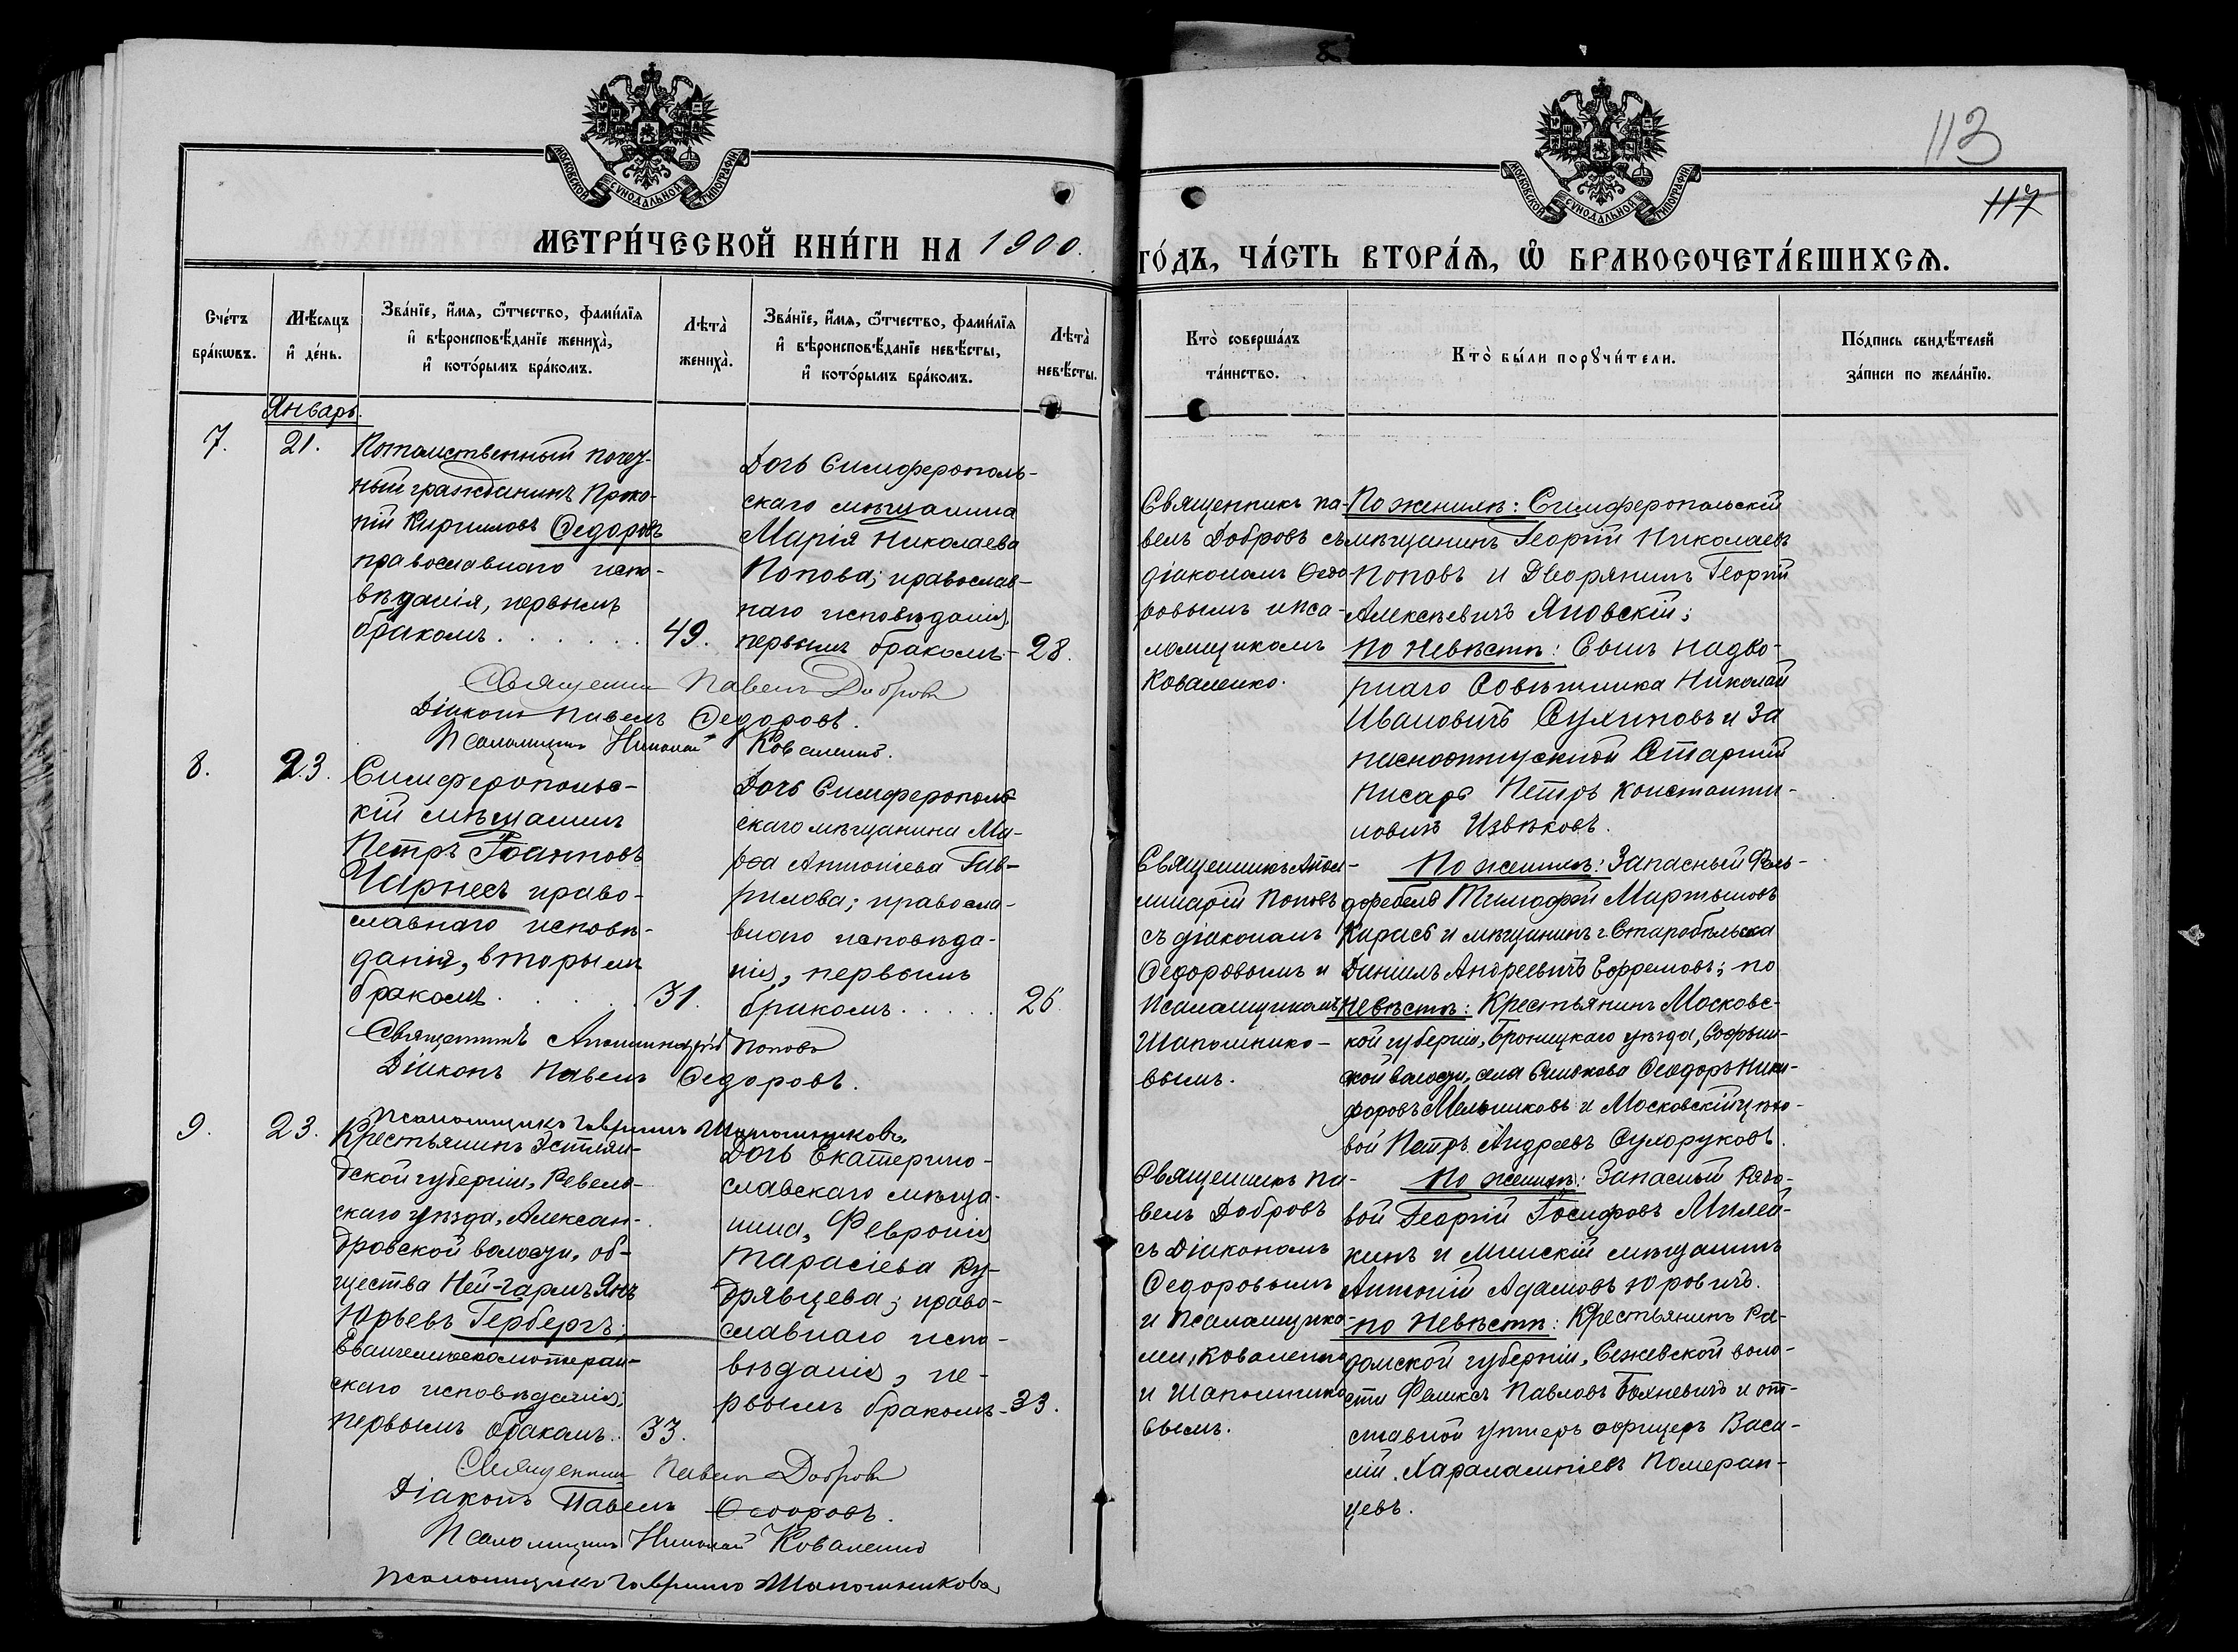 МОСКОВСКОЙ СѴНОДАЛЬНОЙ ТИПОГРАФІИ.
МОСКОВСКОЙ СѴНОДАЛЬНОЙ ТИПОГРАФІИ.
113
117
МЕТРИ́ЧЕСКОЙ КНИ́ГИ НА 1900.
ГО́ДЪ, ЧА́СТЬ ВТОРА́Я, Ѡ҆ БРАКОСОЧЕТА́ВШИХСЯ.
Сче́тъ
бра́кѡвъ.
Мѣ́сяцъ
и҆ де́нь.
Зва́нїе, и҆́мя, ѻ҆́тчество, фами́лїя
и҆ вѣроисповѣ́данїе жениха̀,
и҆ кото́рымъ бра́комъ.
Лѣта̀
жениха̀.
Зва́нїе, и҆́мя, ѻ҆́тчество, фами́лїя
и҆ вѣроисповѣ́данїе невѣ́сты,
и҆ кото́рымъ бра́комъ.
Лѣта̀
невѣ́сты.
Кто̀ соверша́лъ
та́инство.
Кто̀ бы́ли порꙋчи́тели.
По́дпись свидѣ́телей
за́писи по жела́нїю.
Январь.
7.
21.
Потомственный почет-
ный гражданинъ Проко-
пій Кирилловъ Ѳедоровъ
православнаго испо-
вѣданія, первымъ
бракомъ. . . . . . .
49.
Дочь Симферополь-
скаго мѣщанина
Марія Николаева
Попова; православ-
наго исповѣданія,
первымъ бракомъ-
28.
Священникъ Па-
велъ Добровъ съ
діакономъ Ѳедо
ровымъ и пса-
ломщикомъ
Коваленко.
По женихѣ: Симферопольскій
мѣщанинъ Георгій Николаевъ
Поповъ и Дворянинъ Георгій
Алексѣевичъ Яновскій;
по невѣстѣ: Сынъ надво-
рнаго Совѣтника Николай
Ивановичъ Сухиновъ и За
пасноотпускной Старшій
писарь Петръ Константи-
новичъ Извѣковъ.
Священникъ Павелъ Добровъ
Діаконъ Павелъ Ѳедоровъ.
Псаломщикъ Николай Коваленко.
8.
23.
Симферопольс-
кій мѣщанинъ
Петръ Іоанновъ
Чарнесъ право-
славнаго исповѣ-
данія, вторымъ
бракомъ. . . . . .
31.
Дочь Симферополь
скаго мѣщанина Ма-
рѳа Антоніева Гав-
рилова; правосла-
внаго исповѣда-
нія, первымъ
бракомъ. . . . .
26
Священникъ Апол-
линарій Поповъ
съ діакономъ
Ѳедоровымъ и
Псаломщикомъ
Шапошнико-
вымъ.
По женихѣ: Запасный Фель-
дфебель Тимофей Мартыновъ
Карась и мѣщанинъ г. Старобѣльска
Даніилъ Андреевичъ Ефремовъ; по
невѣстѣ: Крестьянинъ Московс-
кой губерніи, Бронницкаго уѣзда, Софьин-
ской волости, села Ѳеодоръ Ники-
форовъ Мельниковъ и Московскій цѣхо-
вой Петръ Андреевъ Сухоруковъ.
Священникъ Аполлинарій Поповъ
Діаконъ Павелъ Ѳедоровъ.
Псаломщикъ Гавріилъ Шапошниковъ
9.
23.
Крестьянинъ Эстлян-
дской губерніи, Ревель-
скаго уѣзда, Алексан-
дровской волости, об-
щества Ней-Гармъ Янъ
Юрьевъ Гербергъ;
Евангелическолютеран-
скаго исповѣданія,
первымъ бракомъ.
33.
Дочь Екатерино-
славскаго мѣща-
нина, Февронія
Тарасіева Ку-
дрявцева; право-
славнаго испо-
вѣданія, пе-
рвымъ бракомъ-
33.
Священникъ Па-
велъ Добровъ
съ Діакономъ
Ѳедоровымъ
и Псаломщика-
ми, Коваленко
и Шапошнико
вымъ.
По женихѣ: Запасный рядо-
вой Георгій Іосифовъ Милей-
кинъ и Минскій мѣщанинъ
Антоній Адамовъ Юровичъ.
по невѣстѣ: Крестьянинъ Ра-
домской губерніи, Сежевской воло-
сти Феликсъ Павловъ и от-
ставной унтеръ офицеръ Васи-
лій Харалампіевъ Померан-
цевъ.
Священникъ Павелъ Добровъ
Діаконъ Павелъ Ѳедоровъ.
Псаломщикъ Николай Коваленко
Псаломщикъ Гавріилъ Шапошниковъ